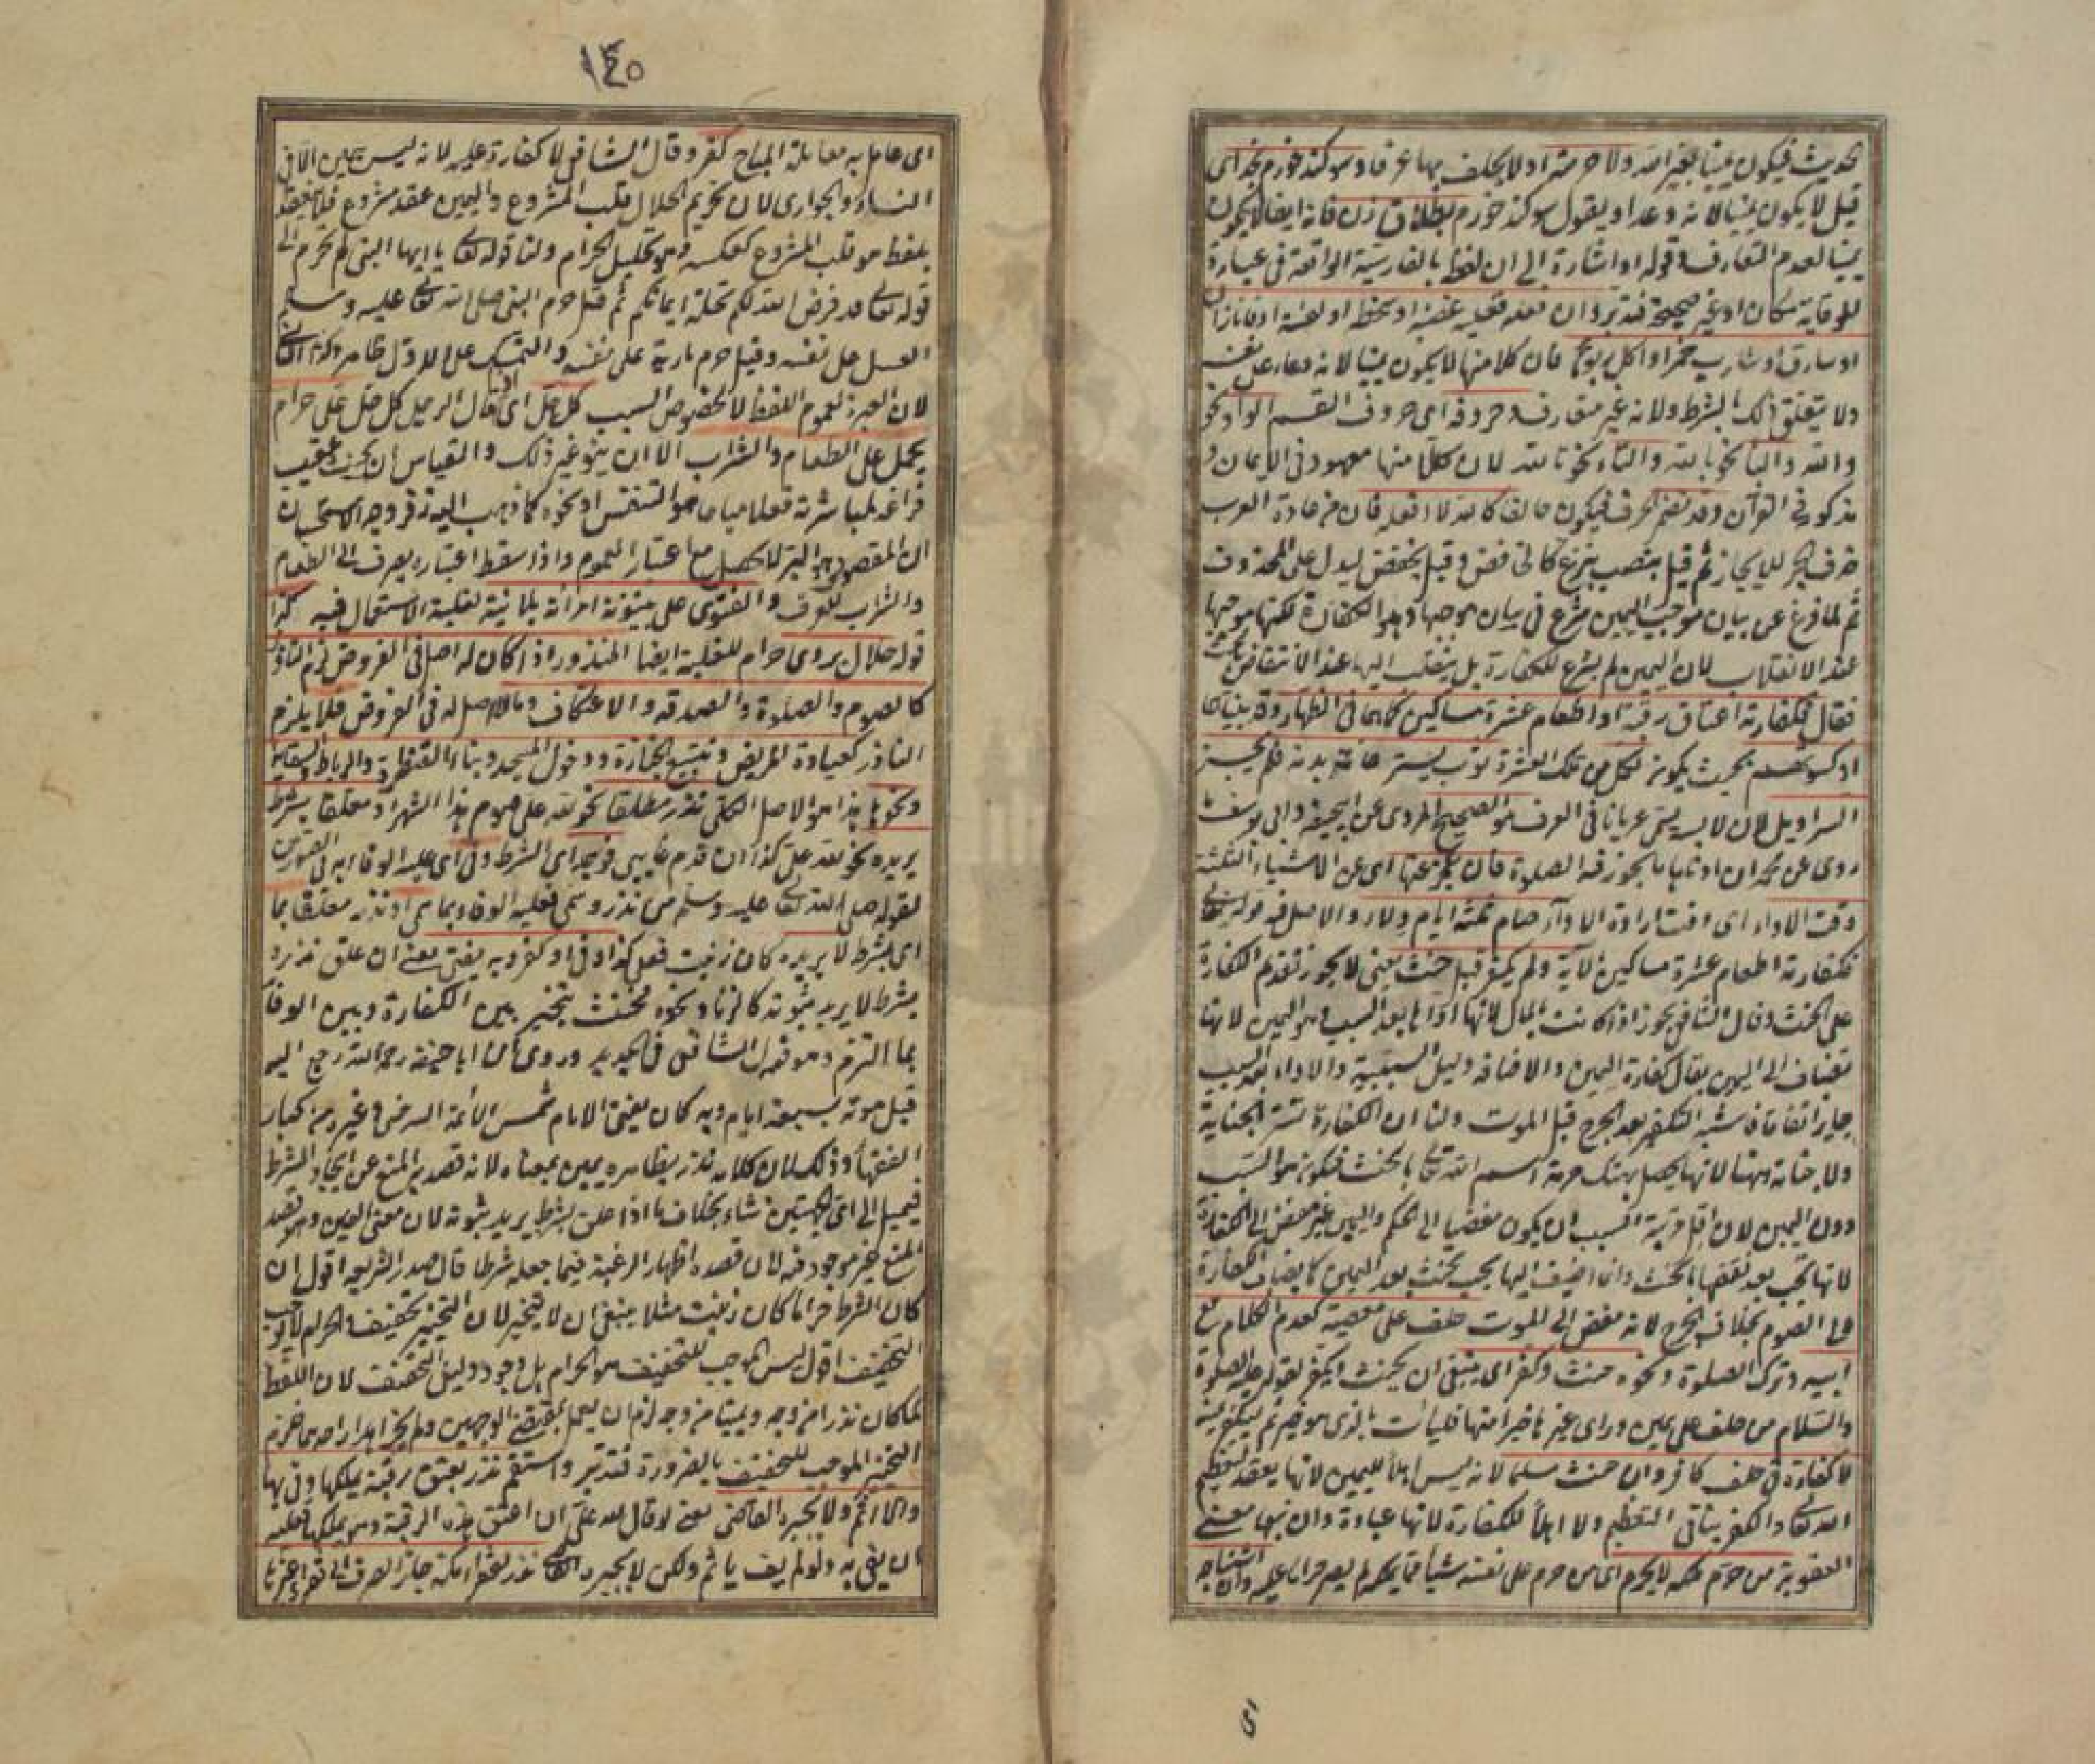 قيل لا يكون يمينا لانه وعد او يقول سوكند خورم بطلاق زن فانه ايضا لا يكون
يمينا لعدم التعارف وقوله او اشارة الى ان لفظ بالفارسية الواقعة في عبارة
او سارق او شارب خمر او اكل ربوا فان كلا منها لا يكون يمينا لانه دعاء على نفسه
ولا يتعلق ذلك بالشرط ولانه غير متعارف وحروفه اى حروف القسم الواو نحو
والله والبا نحو بالله والتاء نحو تالله لان كلا منها معهود في الايمان و
مذكور في القرآن وقد تضمر الحرف فيكون حالفا كالله لا افعله فان من عادة العرب
حذف الجر للايجاز ثم قيل ينصب بنزع الخافض وقيل يخفض ليدل على المحذوف
ثم لما فرغ عن بيان موجب اليمين شرع في بيان موجبها وهو الكفارة لكنها موجبها
عند الانقلاب لان اليمين لم يشرع للكفارة بل ينقلب اليها عند الانتقاض بالحنث
فقال فكفارته اعتاق رقبة او اطعام عشرة مساكين كما هما في الظهار وقد بيناهما
او كسوتهم بحيث يكون لكل من تلك العشرة ثوب يستر عامة بدنه فلم يجز
السراويل لان لابسه يسمى عريانا في العرف هو الصحيح المروى عن ابيحنيفة وابى يوسف
روى عن محمد ان ادناها ما يجوز فيه الصلوة فان عجز عنها اى عن الاشياء الثلثة
وقت الاداء اى وقت ارادة الاداء صام ثلثة ايام ولاء والاصل فيه قوله تعالى
فكفارته اطعام عشرة مساكين الآية ولم يكفر قبل حنث يعنى لا يجوز تقديم الكفارة
على الحنث وقال الشافعى يجوز اذا كانت بالمال لانها اداها بعد السبب وهو اليمين لانها
تضاف الى اليمين يقال كفارة اليمين والاضافة دليل السببية والاداء بعد السبب
جايز اتفاقا فاشبه التكفير بعد الجرح قبل الموت ولنا ان الكفارة لستر الجناية
ولا جناية ههنا لانها يحصل بهتك حرمة اسم الله تعالى بالحنث فيكون هو السبب
دون اليمين لان اقل مرتبة السبب ان يكون مفضيا الى الحكم واليمين غير مفض الى الكفارة
لانها تجب بعد نقضها بالحنث وانما اضيف اليها يجب بحنث بعد اليمين كما يضاف الكفارة
الى الصوم بخلاف الجرح لانه مفض الى الموت حلف على معصية كعدم الكلام مع
ابيه وترك الصلوة ونحوه حنث وكفر اى ينبغى ان يحنث ويكفر لقوله عليه الصلوة
والسلام من حلف على يمين وراى غيرها خيرا منها فليأت بالذى هو خير ثم ليكفر يمينه
لا كفارة في حلف كافر وان حنث مسلما لانه ليس اهلا لليمين لانها يعقد لتعظيم
الله تعالى والكفر ينافى التعظيم ولا اهلا للكفارة لانها عبادة وان فيها معنى
العقوبة من حرم ملكه لا يحرم اى من حرم على نفسه شيأ مما يملكه لم يصر حراما عليه وان استباحه
اى
١٤٠
اى عامل به معاملة المباح كفر وقال الشافعى لا كفارة عليه لانه ليس بيمين الا في
النساء والجوارى لان تحريم الحلال قلب المشروع واليمين عقد مشروع فلا ينعقد
بلفظ هو قلب المشروع كعكسه وهو تحليل الحرام ولنا قوله تعالى يا ايها النبى لم تحرم الى
قوله تعالى قد فرض الله لكم تحلة ايمانكم ثم قيل حرم النبى صلى الله تعالى عليه وسلم
العسل على نفسه وقيل حرم مارية على نفسه والتمسك على الاول ظاهر وكذا الثانى
لان العبرة لعموم اللفظ لا لخصوص السبب كل حل اى اذا قال الرجل كل حل على حرام
يحمل على الطعام والشراب الا ان ينوى غير ذلك والقياس ان يحنث عقيب
فراغه لمباشرته فعلا مباحا هو التنفس او نحوه كما ذهب اليه زفر وجه الاستحسان
ان المقصود هو البر لا يحصل مع اعتبار العموم واذا سقط اعتباره يصرف الى الطعام
والشراب للعرف والفتوى على بينونة امرأته بلا نية لغلبة الاستعمال فيه كذا
قوله حلال بر وى حرام للغلبة ايضا المنذور اذا كان له اصل في الفروض لزم الناذر
كالصوم والصلوة والصدقة والاعتكاف وما لا اصل له في الفروض فلا يلزم
الناذر كعيادة المريض وتشييع الجنازة ودخول المسجد وبناء القنطرة والرباط والسقاية
ونحوها هذا هو الاصل الكلى نذر مطلقا نحو لله على صوم هذا الشهر او معلقا بشرط
يريده نحو لله على كذا ان قدم غايبى فوجد اى الشرط وفى اى عليه الوفاء به في الصورتين
لقوله صلى الله تعالى عليه وسلم من نذر وسمى فعليه الوفاء بما سمى او نذر معلقا بما
اى بشرط لا يريده كان زنيت فعلى كذا وفى او كفر وبه يفتى يعنى ان علق نذره
بشرط لا يريد ثبوته كالزنا ونحوه فحنث يتخير بين الكفارة وبين الوفا
بما التزم وهو قول الشافعى في الجديد وروى ان ابا حنيفة رحمه الله رجع اليه
قبل موته بسبعة ايام وبه كان يفتى الامام شمس الائمة السرخسى وغيره من كبار
الفقهاء وذلك لان كلامه نذر بظاهره يمين بمعناه لانه قصد به المنع عن ايجاد الشرط
فيميل الى اى الجهتين شاء بخلاف ما اذا علق بشرط يريد ثبوته لان معنى اليمين وهو قصد
المنع غير موجود فيه لان قصده اظهار الرغبة فيما جعله شرطا قال صدر الشريعة اقول ان
كان الشرط حراما كان زنيت مثلا ينبغى ان لا يتخير لان التخيير تخفيف والحرام لا يوجب
التخفيف اقول ليس الموجب للتخفيف هو الحرام بل وجود دليل التخفيف لان اللفظ
لما كان نذرا من وجه ويمينا من وجه لزم ان يعمل بمقتضى الوجهين ولم يجز اهدار احدهما فلزم
التخيير الموجب للتخفيف بالضرورة فتدبر واستقم نذر بعتق رقبة يملكها وفى بها
والا اثم ولا يجبره القاضى يعنى لو قال لله على ان اعتق هذه الرقبة وهو يملكها فعليه
ان يفى به ولو لم يف يأثم ولكن لا يجبره القاضى نذر لفقراء مكة جاز الصرف الى فقراء غيرها